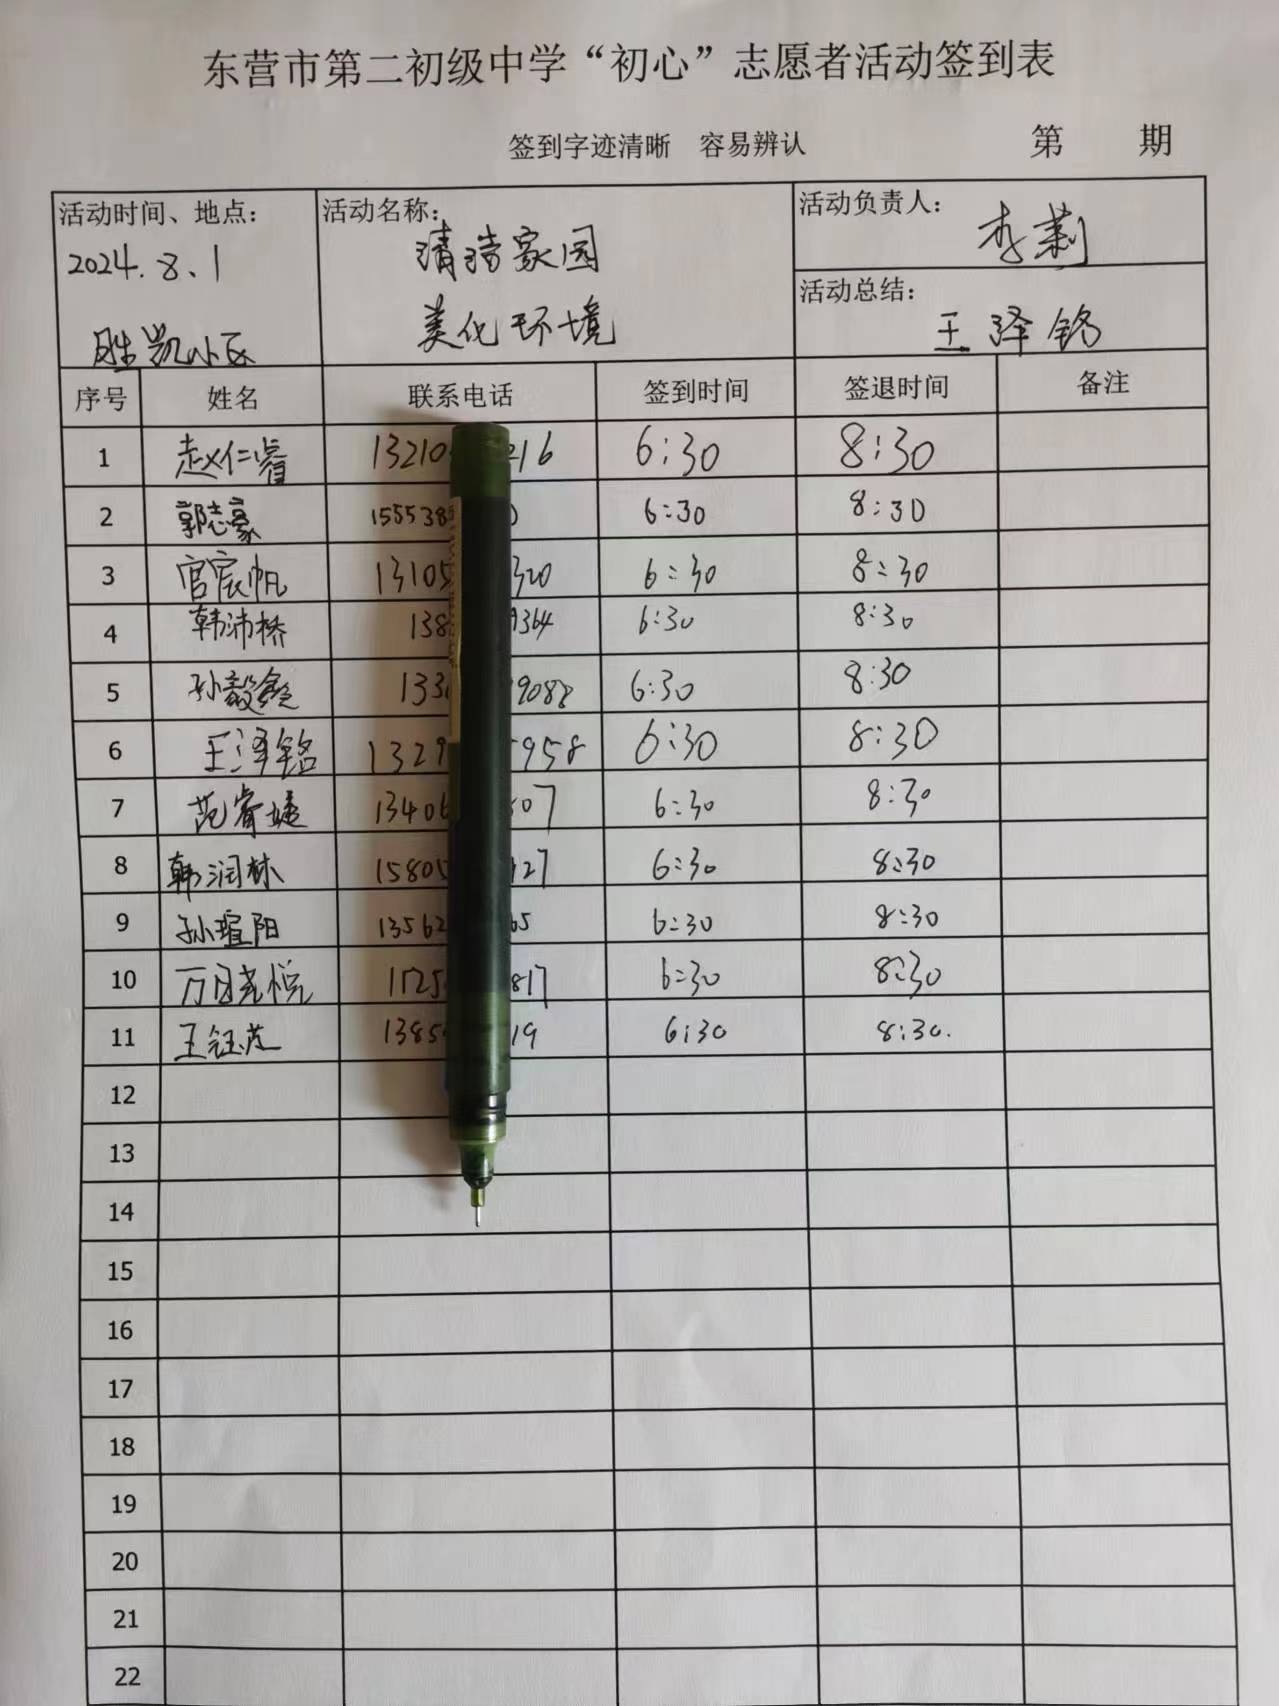 东营市第二初级中学“初心”志愿者活动签到表
签到字迹清晰 容易辨认 第 期
活动时间、地点：
2024.8.1
胜凯小区
活动名称：
清洁家园
美化环境
活动负责人：
李莉
活动总结：
王泽铭
序号 姓名 联系电话 签到时间 签退时间 备注
1 赵仁睿 13210 216 6:30 8:30
2 郭志豪 155538 0 6:30 8:30
3 官宸帆 13105 320 6:30 8:30
4 韩沛桥 138 9364 6:30 8:30
5 孙毅鑫 133 9088 6:30 8:30
6 王泽铭 1329 5958 6:30 8:30
7 范睿婕 13406 507 6:30 8:30
8 韩润林 15805 127 6:30 8:30
9 孙瑄阳 13562 65 6:30 8:30
10 1725 817 6:30 8:30
11 王钰芯 1385 19 6:30 8:30.
12
13
14
15
16
17
18
19
20
21
22